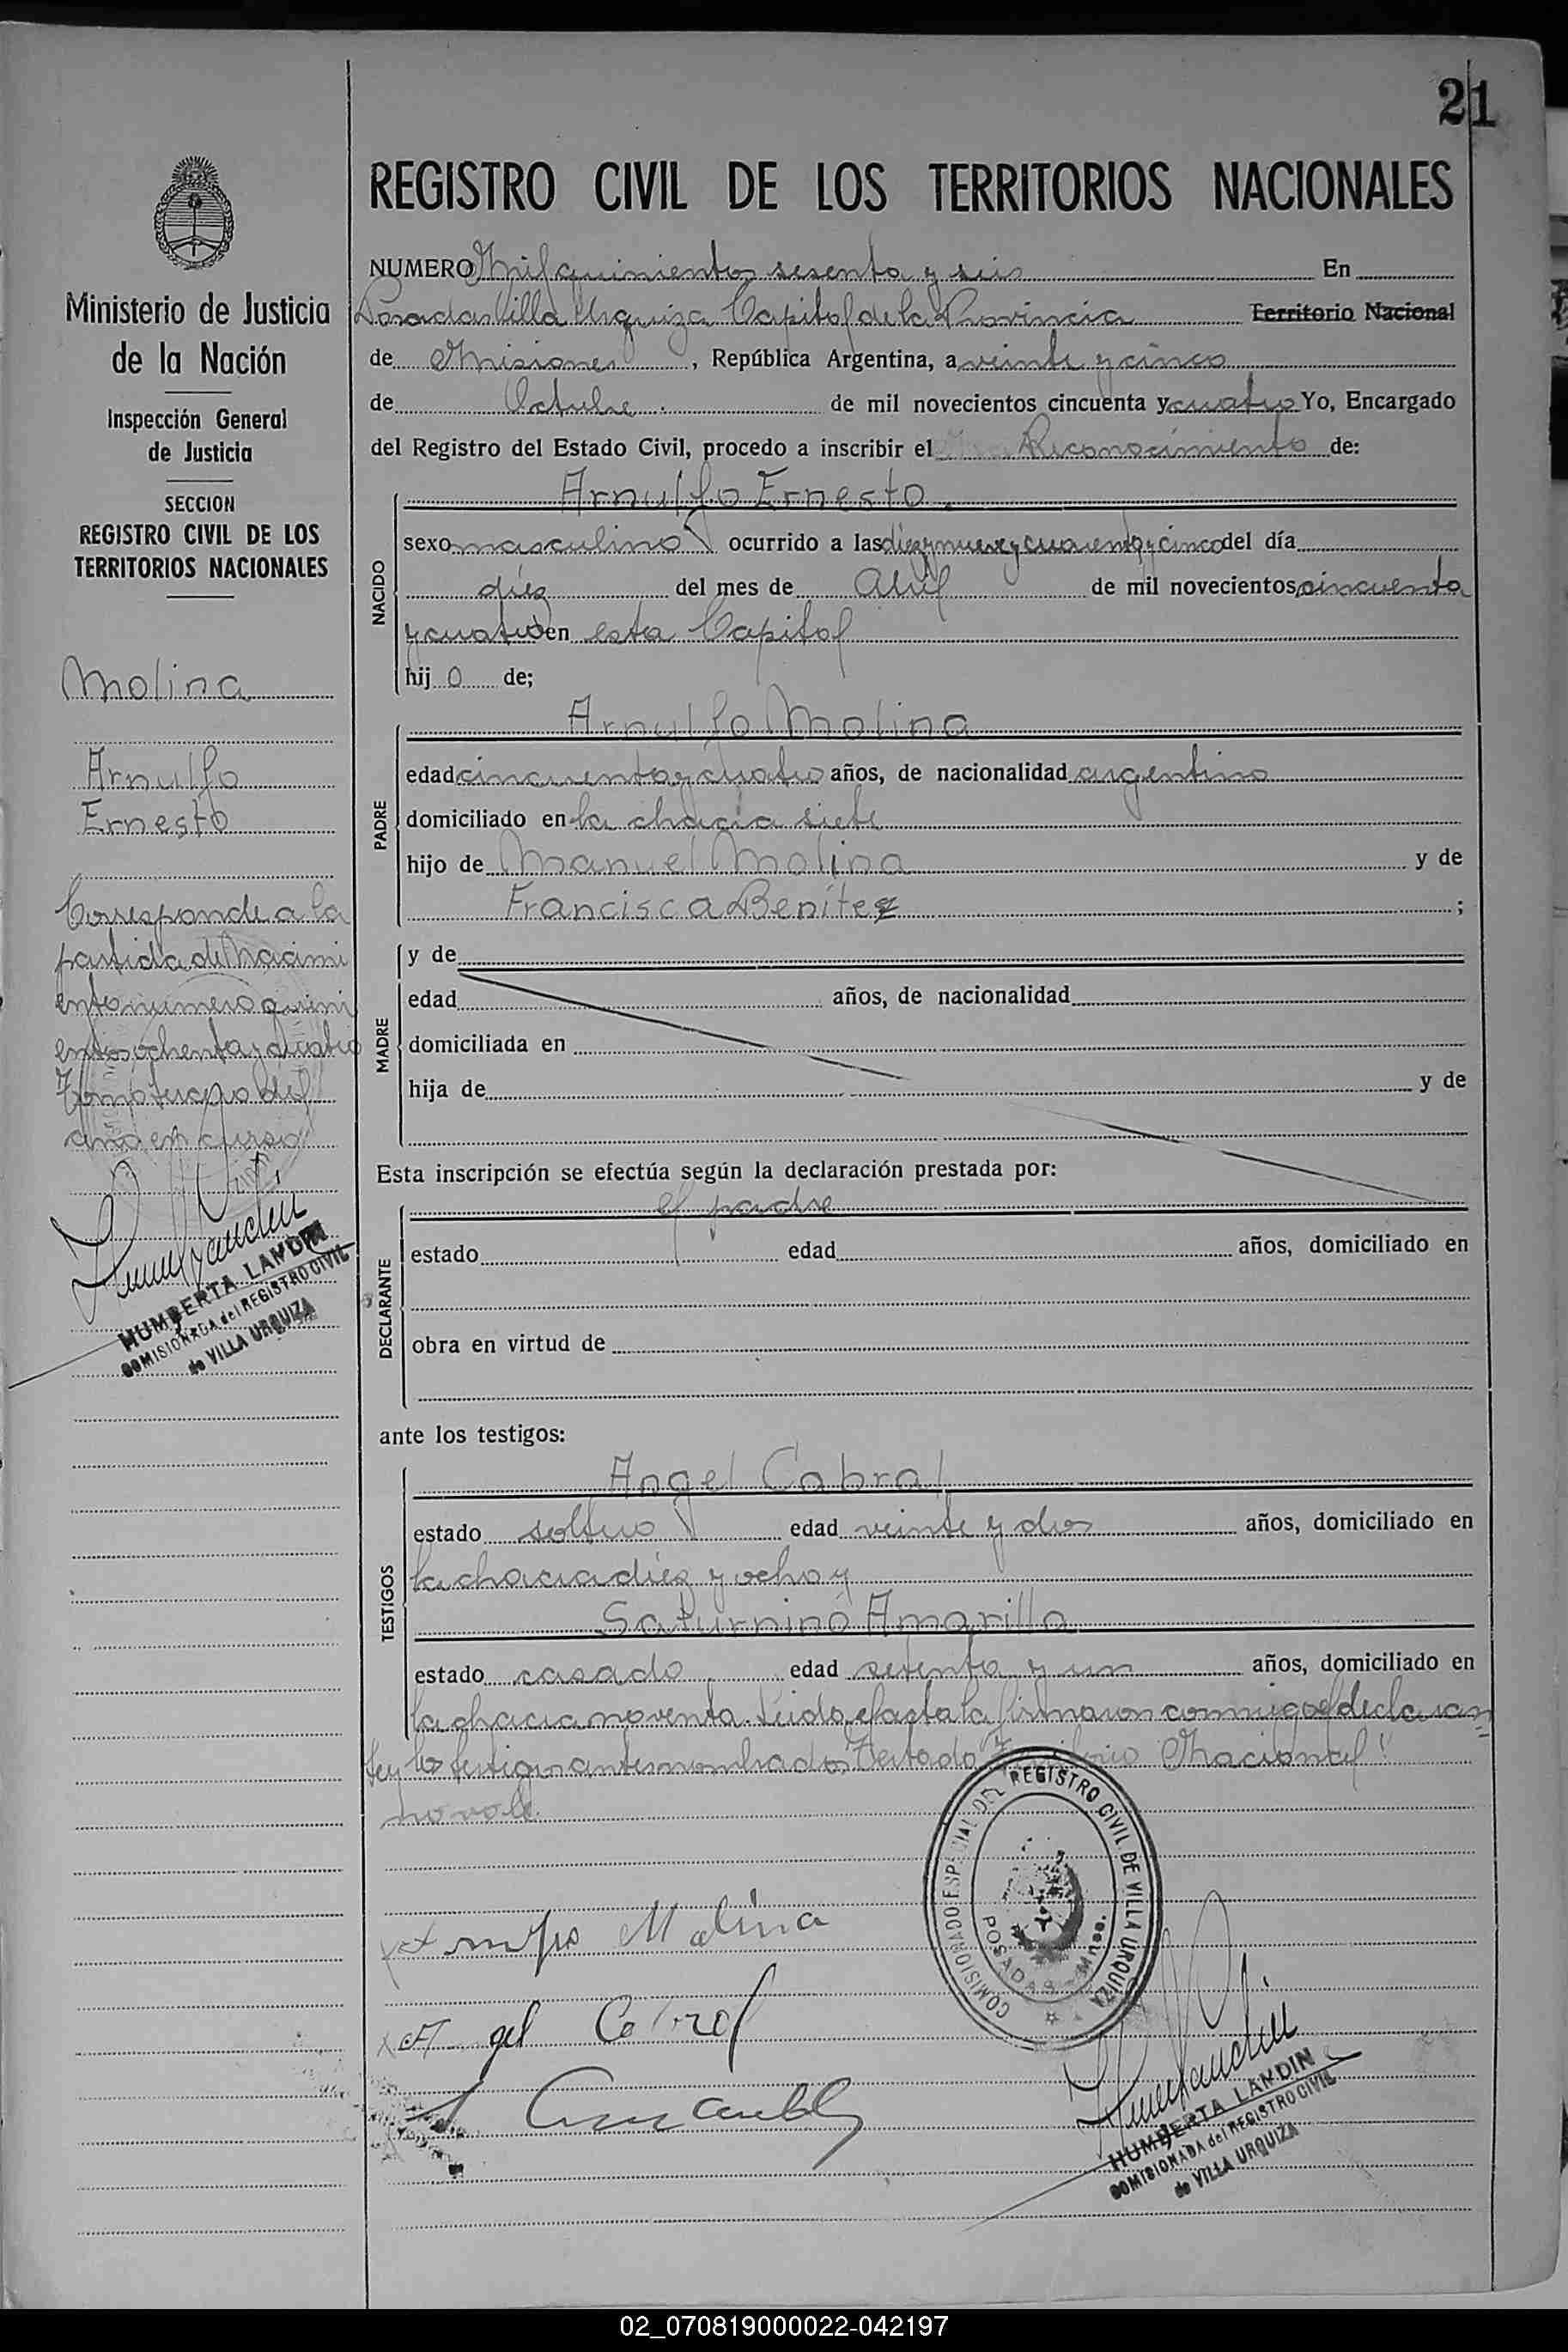 21
REGISTRO CIVIL DE LOS TERRITORIOS NACIONALES
Ministerio de Justicia
de la Nación
Inspección General
de Justicia
SECCION
REGISTRO CIVIL DE LOS
TERRITORIOS NACIONALES
Molina
Arnulfo
Ernesto
Corresponde a la
partida de Nacimi
ento numero quini
entos ochenta y cuatro
Tomo tercero del
año en curso
HUMBERTA LANDIN
COMISIONADA del REGISTRO CIVIL
de VILLA URQUIZA
NUMERO Mil quinientos sesenta y seis En
Posadas Villa Urquiza Capital de la Provincia Territorio Nacional
de Misiones, República Argentina, a veinte y cinco
de Octubre de mil novecientos cincuenta y cuatro Yo, Encargado
del Registro del Estado Civil, procedo a inscribir el Reconocimiento de:
NACIDO
Arnulfo Ernesto.
sexo masculino ocurrido a las diez y nueve y cuarenta y cinco del día
diez del mes de Abril de mil novecientos cincuenta
y cuatro en esta Capital
hij o de;
PADRE
Arnulfo Molina
edad cincuenta y cuatro años, de nacionalidad argentino
domiciliado en la chacra siete
hijo de Manuel Molina y de
Francisca Benítez ;
MADRE
y de
edad años, de nacionalidad
domiciliada en
hija de y de
Esta inscripción se efectúa según la declaración prestada por:
DECLARANTE
el padre
estado edad años, domiciliado en
obra en virtud de
ante los testigos:
TESTIGOS
Angel Cabral
estado soltero edad veinte y dos años, domiciliado en
la chacra diez y ocho y
Saturnino Amarilla
estado casado edad setenta y un años, domiciliado en
la chacra noventa. Leida el acta la firmaron conmigo el declaran
te y los testigos antes nombrados Testado "Territorio Nacional"
no vale.
Arnulfo Molina
Angel Cabral
COMISIONADO ESPECIAL DEL REGISTRO CIVIL DE VILLA URQUIZA
POSADAS - Mnes.
HUMBERTA LANDIN
COMISIONADA del REGISTRO CIVIL
de VILLA URQUIZA
02_070819000022-042197